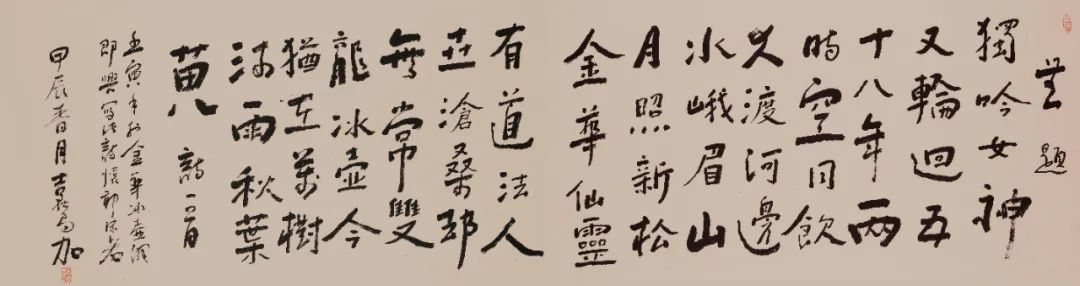 無題
獨吟女神
又輪迴五
十八年兩
時空同飲
大渡河邊
水峨眉山
月照新松
金華仙靈
有道法人
世滄桑卻
無常雙
龍冰壺今
猶在萬樹
沐雨秋葉
黃 詩一首
壬寅年於金華冰壺洞
即興寫此詩懷郭沫若
甲辰春月吉狄馬加